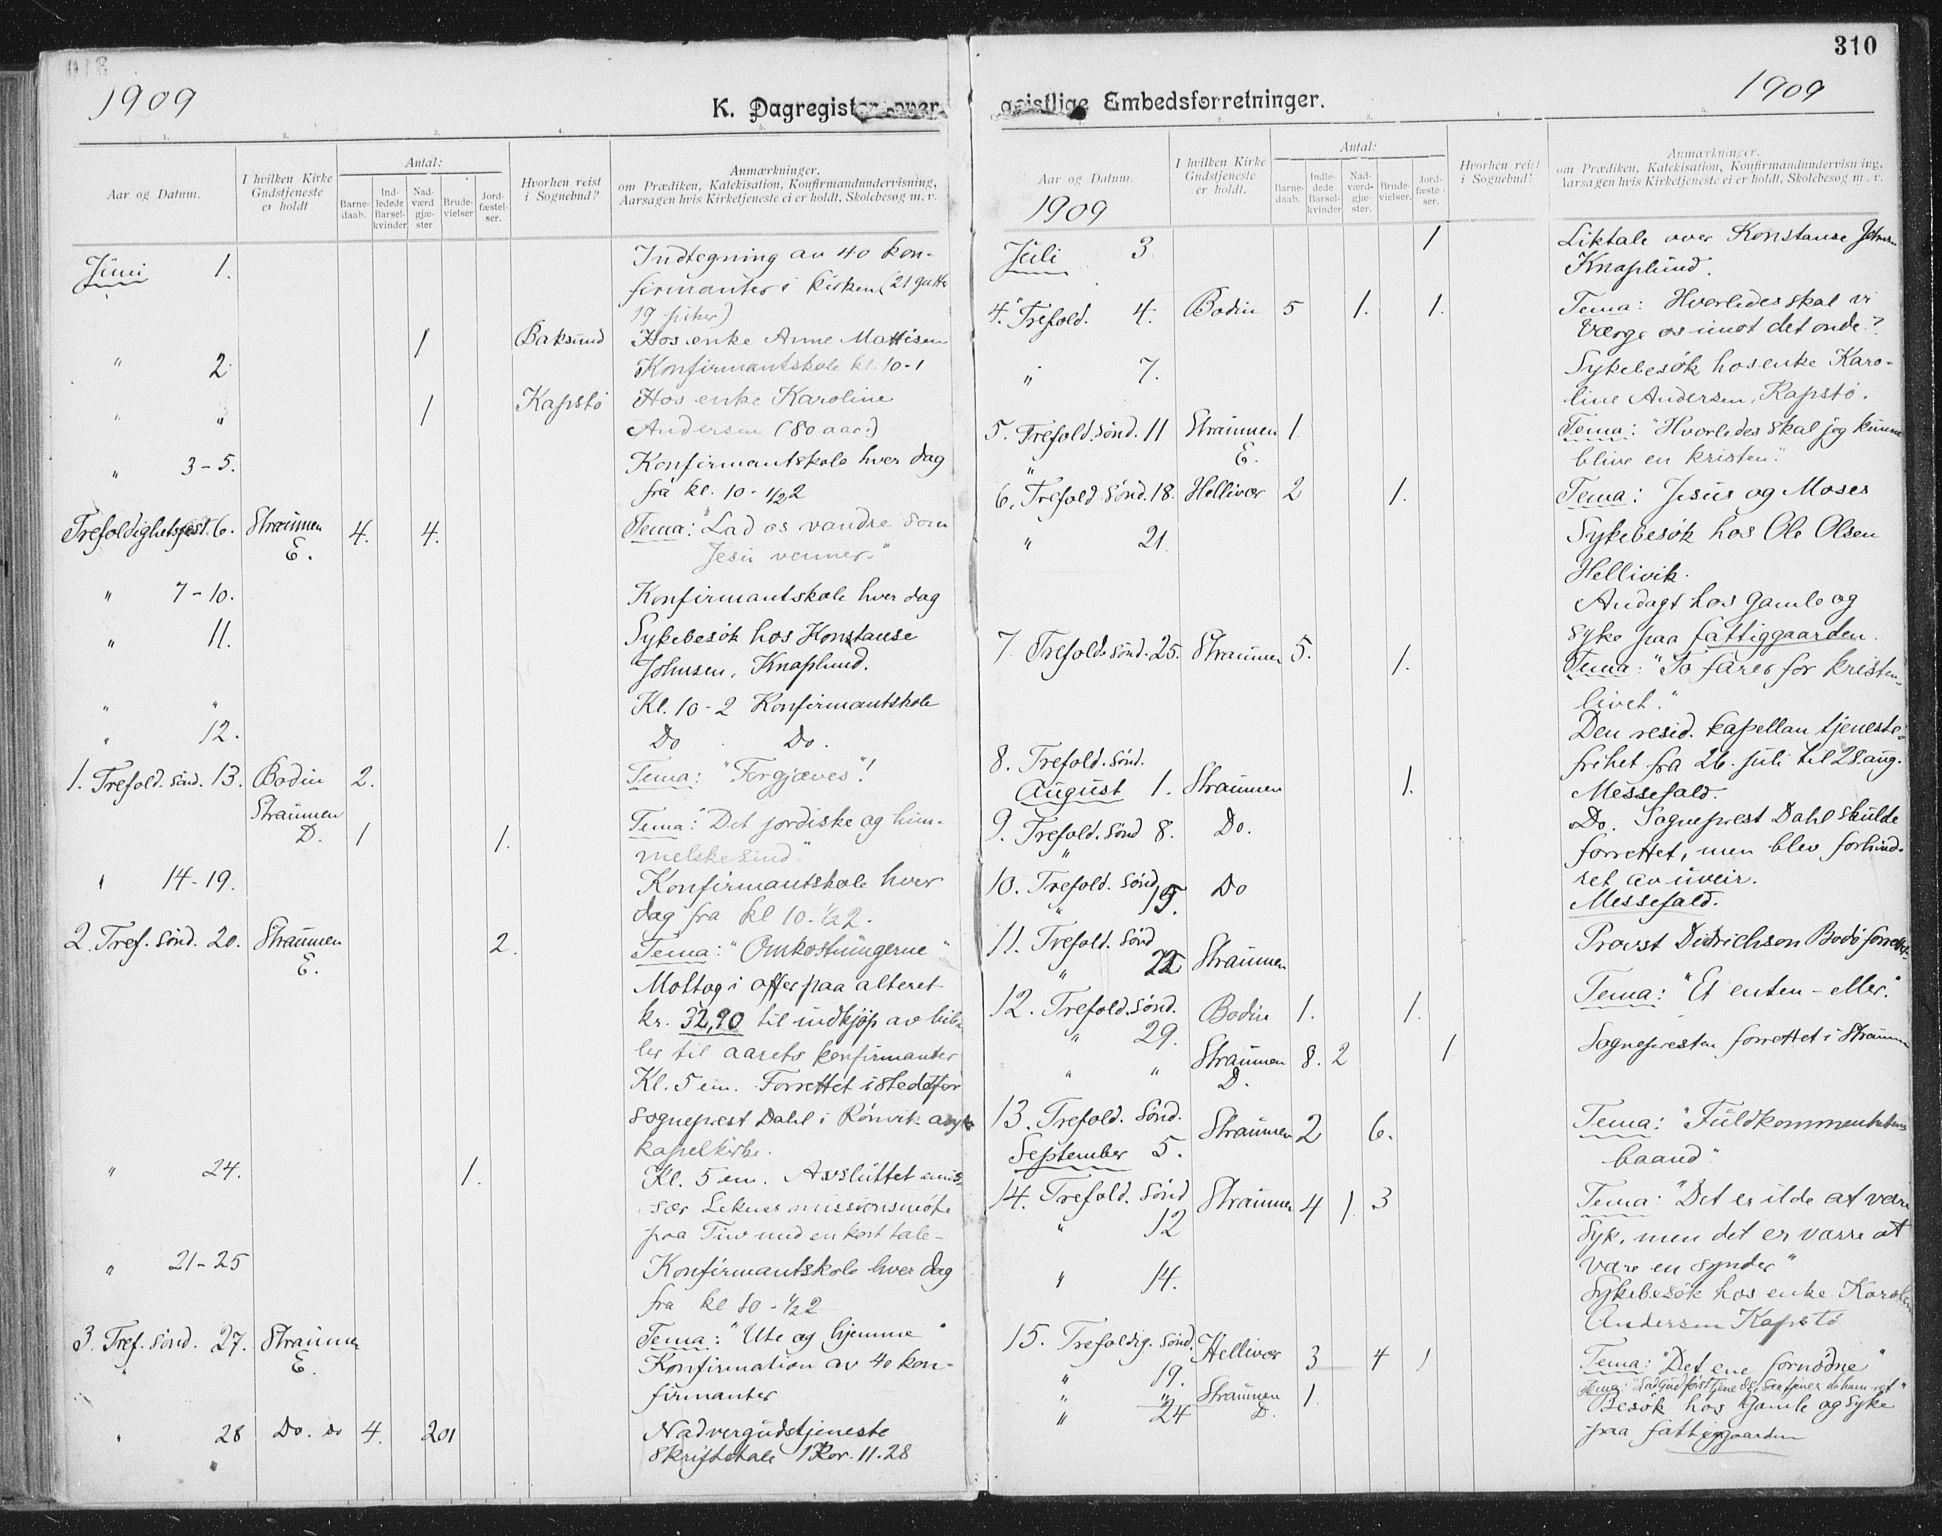 310
1909
1909
K. Dagregister over
geistlige Embedsforretninger.
1.
2.
3.
4.
5.
Aar og Datum.
I hvilken Kirke
Gudstjeneste
er holdt
Antal:
Barne-
daab.
Ind-
ledede
Barsel-
kvinder
Nad-
værd
gjæ-
ster
Brude-
vielser
Jord-
fæstel-
ser.
Hvorhen reist
i Sognebud?
Anmærkninger.
om Prædiken, Katekisation, Konfirmandundervisning,
Aarsagen hvis Kirketjeneste ei er holdt, Skolebesøg m. v.
Juni 1. Indtegning av 40 kon-
firmanter i kirken (21 gutter
19 piker)
" 2. 1 Baksund Hos enke Anne Mattisen
Konfirmantskole kl. 10-1
" " 1 Kapstø Hos enke Karoline
Andersen (80 aar.)
" 3-5. Konfirmantskole hver dag
fra kl. 10-½2
Trefoldighetsfest 6. Straumen 4. 4. Tema: "Lad os vandre som
E. Jesu venner."
" 7-10. Konfirmantskole hver dag
" 11. Sykebesök hos Konstanse
Johnsen, Knaplund.
" " Kl. 10-2 Konfirmantskole
" 12. Do Do.
1. Trefold. sönd. 13. Bodin 2. Tema: "Forgjæves"!
Straumen
D. 1 1. Tema: "Det jordiske og him-
melske sind".
" 14-19. Konfirmantskole hver
dag fra kl 10-½2.
2. Tref. sönd. 20. Straumen 2. Tema: "Omkostningerne"
E.
Mottog i offer paa alteret
kr. 32,90 til indkjöp av bib-
ler til aarets konfirmanter
Kl. 5 em. Forrettet istedetfor
sogneprest Dahl i Rönvik asyls
kapelkirke.
" 24. 1. Kl. 5 em. Avsluttet emis-
sær missionsmöte
paa med en kort tale-
" 21-25 Konfirmantskole hver dag
fra kl 10-½2
3. Tref. sönd. 27. Straumen Tema: "Ute og hjemme"
" E. Konfirmation av 40 kon-
firmanter
" 28 Do. do 4. 201 Nadvergudstjeneste
Skriftetale 1 Kor. 11.28
Aar og Datum.
1909
I hvilken Kirke
Gudstjeneste
er holdt.
Antal:
Barne-
daab.
Indle-
dede
Barsel-
kvinder
Nad-
værd-
gjæ-
ster.
Brude-
vielser.
Jord-
fæste-
ser.
Hvorhen reist
i Sognebud?
Anmærkninger.
om Prædiken, Katekisation, Konfirmandundervisning,
Aarsagen hvis Kirketjeneste ei er holdt, Skolebesøg m. v.
Juli 3. 1 Liktale over Konstanse Johnsen
Knaplund.
4. Trefold. 4. Bodin 5 1. 1. Tema: Hvorledes skal vi
værge os imot det onde?
" 7. Sykebesök hos enke Karo-
line Andersen, Kapstø.
5. Trefold. sönd. 11 Straumen 1. Tema: "Hvorledes skal jeg kunne
" E. blive en kristen."
6. Trefold sönd. 18. Hellivær 2 1. Tema: Jesus og Moses
" 21. Sykebesök hos Ole Olsen
Hellivik.
Andagt hos gamle og
syke paa fattiggaarden.
7. Trefold. sönd. 25. Straumen 5. 1. Tema: "To farer for kristen-
livet."
Den resid. kapellan tjeneste-
frihet fra 26. juli til 28. aug.
8. Trefold. sönd.
August 1. Straumen 1. Messefald.
9. Trefold. sönd 8. Do. Do. Sogneprest Dahl skulde
" forrettet, men blev forhind-
ret av uveir.
10. Trefold. sönd
" 15. Do Messefald.
11. Trefold. sönd Provst Didrichson Bodö forrettet
" 22 Straumen
12. Trefold. sönd. Bodin 1. 1. Tema: "Et enten-eller."
" 29.
" " Straumen 8. 2 1 Sognepresten forrettet i Straumen
D.
13. Trefold. sönd. Straumen 2 6. Tema: "Fuldkommenhetens
September 5. baand".
14. Trefold. sönd Straumen 4 1 3 Tema: "Det er ilde at være
" 12 syk, men det er værre at
være en synder"
" 14. Sykebesök hos enke Karoline
Andersen Kapstø
15. Trefoldig. sönd. Hellivær 3 4 1 Tema: "Det ene fornödne"
" 19.
" " Straumen 1.
D.
" 24 Besök hos gamle og syke
paa fattiggaarden